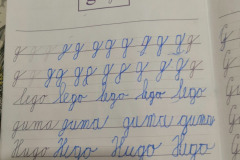 g
g g g g g g g g g g g
g g g g g g g g g g g
lego lego lego lego lego
guma guma guma guma
Hugo Hugo Hugo Hugo
G